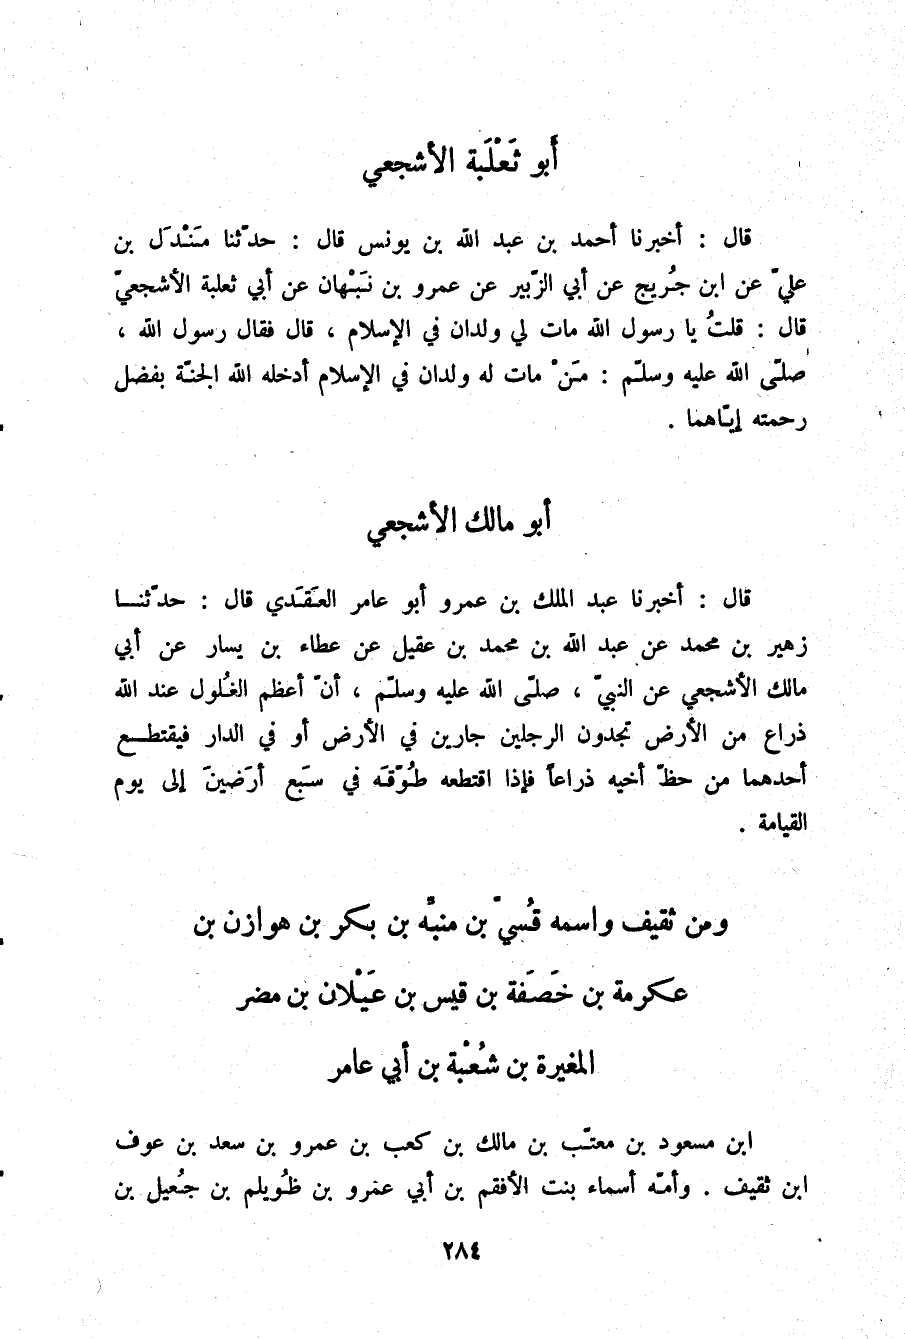 أَبو ثَعْلَبة الأشجعي
قال : أخبرنا أحمد بن عبد الله بن يونس قال : حدّثنا مَنْدَل بن
عليّ عن ابن جُريج عن أبي الزّبير عن عمرو بن نَبْهان عن أبي ثعلبة الأشجعيّ
قال : قلتُ يا رسول الله مات لي ولدان في الإسلام ، قال فقال رسول الله ،
صلّى الله عليه وسلّم : مَنْ مات له ولدان في الإسلام أدخله الله الجنّة بفضل
رحمته إيّاهما .
أبو مالك الأشجعي
قال : أخبرنا عبد الملك بن عمرو أبو عامر العَقَدي قال : حدّثنـــا
زهير بن محمد عن عبد الله بن محمد بن عقيل عن عطاء بن يسار عن أبي
مالك الأشجعي عن النبيّ ، صلّى الله عليه وسلّم ، أنّ أعظم الغُلول عند الله
ذراع من الأرض تجدون الرجلين جارين في الأرض أو في الدار فيقتطـــع
أحدهما من حظّ أخيه ذراعاً فإذا اقتطعه طُوّقَه في سَبع أرَضينَ إلى يوم
القيامة .
ومن ثقيف واسمه قُسيّ بن منبّه بن بكر بن هوازن بن
عكرمة بن خَصَفة بن قيس بن عَيْلان بن مضر
المغيرة بن شُعْبة بن أبي عامر
ابن مسعود بن معتّب بن مالك بن كعب بن عمرو بن سعد بن عوف
ابن ثقيف . وأمّه أسماء بنت الأفقم بن أبي عمرو بن ظُويلم بن جُعيل بن
٢٨٤